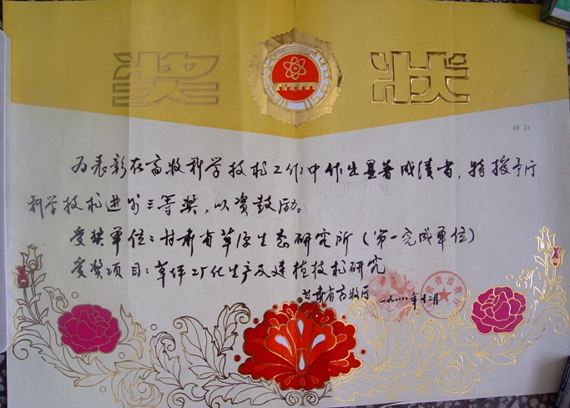 奖 状
为表彰在畜牧科学技术工作中作出显著成绩者，特授予厅
科学技术进步三等奖，以资鼓励。
受奖单位：甘肃省草原生态研究所（第一完成单位）
受奖项目：草坪工厂化生产及建植技术研究
甘肃省畜牧厅